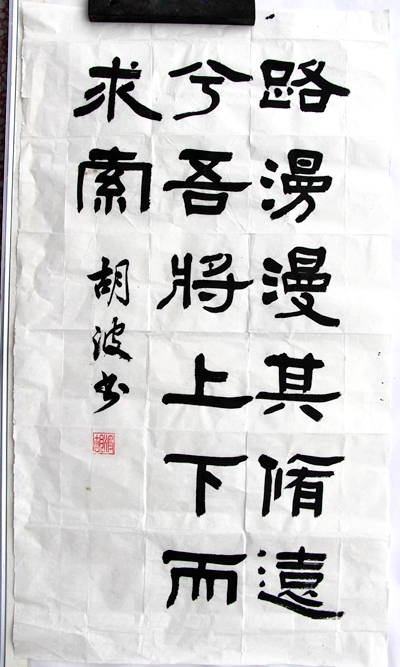 路漫漫其脩遠
兮吾將上下而
求索
胡波书